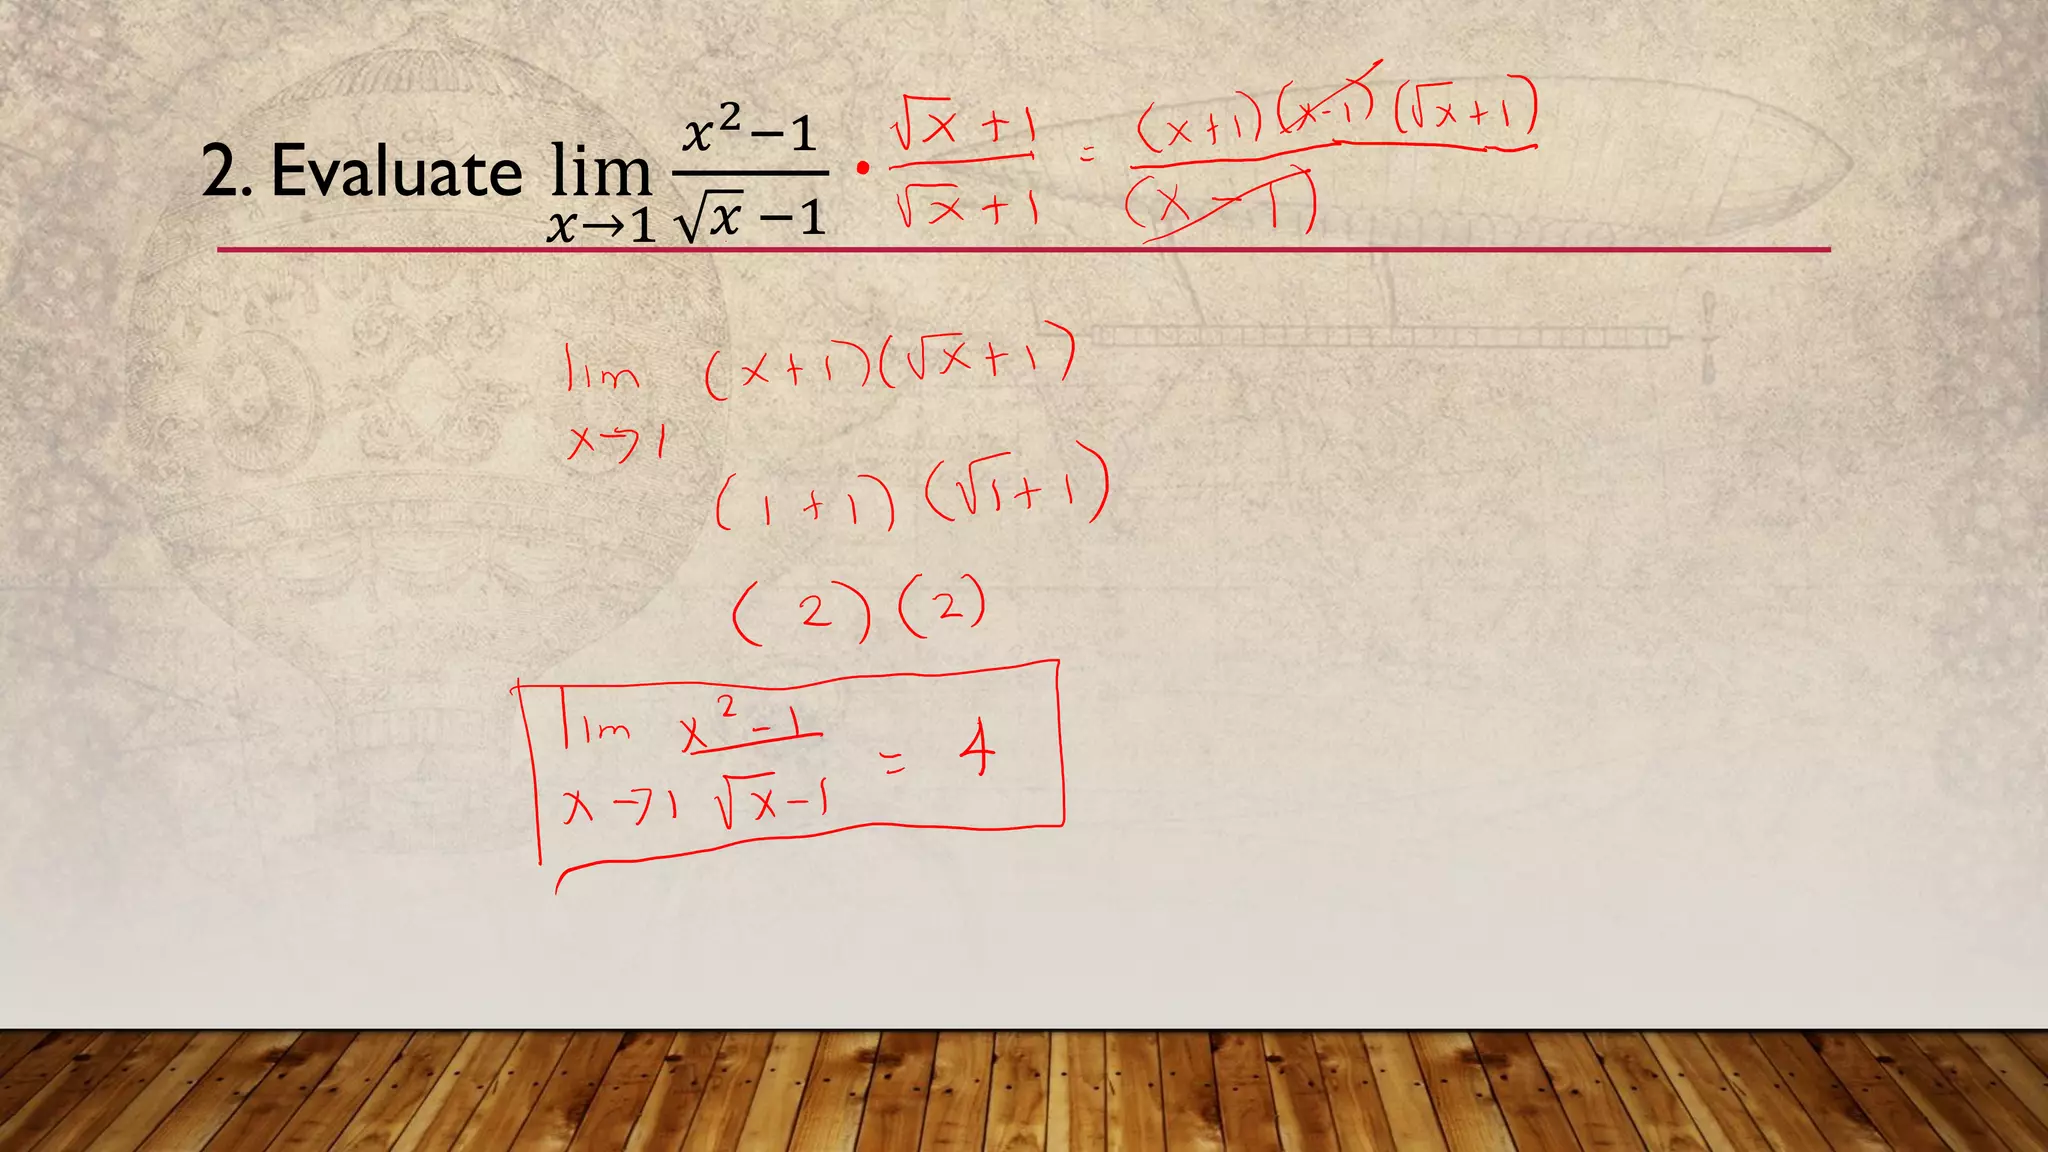 2. Evaluate lim x→1 x²−1 / √x −1 • √x + 1 / √x + 1 = (x+1)(x-1)(√x+1) / (x-1)
lim x→1 (x+1)(√x+1)
(1+1)(√1+1)
(2)(2)
lim x→1 x²-1 / √x-1 = 4